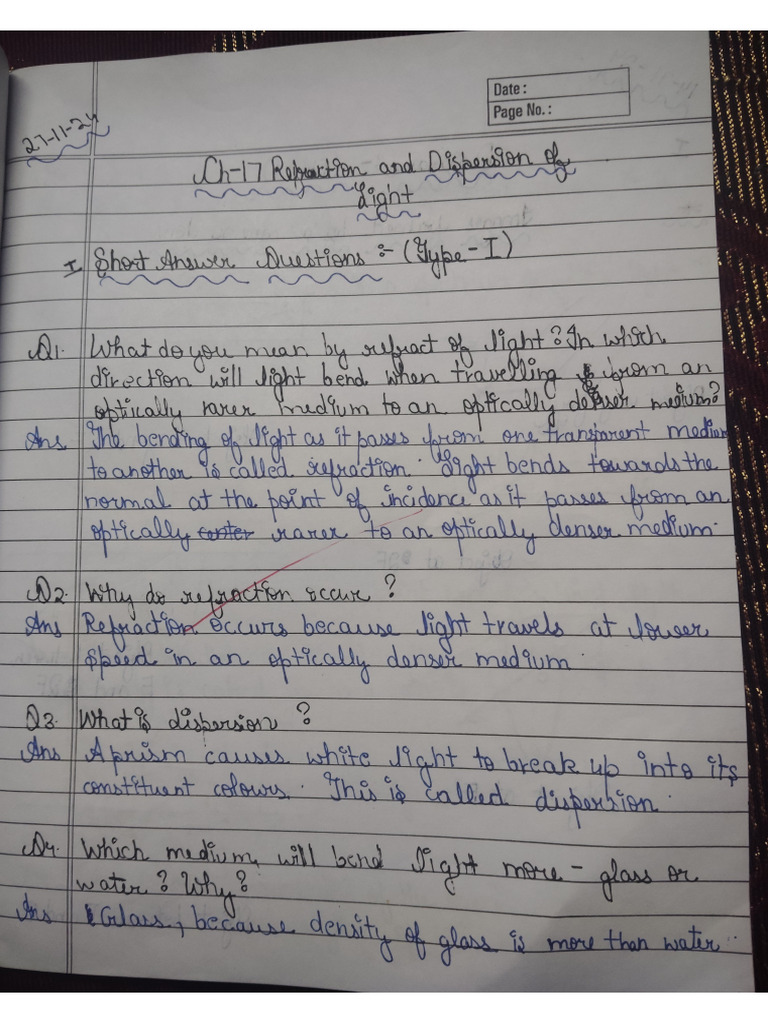 Date:
Page No.:
27-11-24
Ch-17 Refraction and Dispersion of
Light
I Short Answer Questions :- (Type - I)
Q1. What do you mean by refract of light? In which
direction will light bend when travelling from an
optically rarer medium to an optically denser medium?
Ans The bending of light as it passes from one transparent medium
to another is called refraction. Light bends towards the
normal at the point of incidence as it passes from an
optically rarer to an optically denser medium.
Q2. Why do refraction occur?
Ans Refraction occurs because light travels at lower
speed in an optically denser medium.
Q3. What is dispersion?
Ans A prism causes white light to break up into its
constituent colours. This is called dispersion.
Q4. Which medium will bend light more - glass or
water? Why?
Ans Glass, because density of glass is more than water.